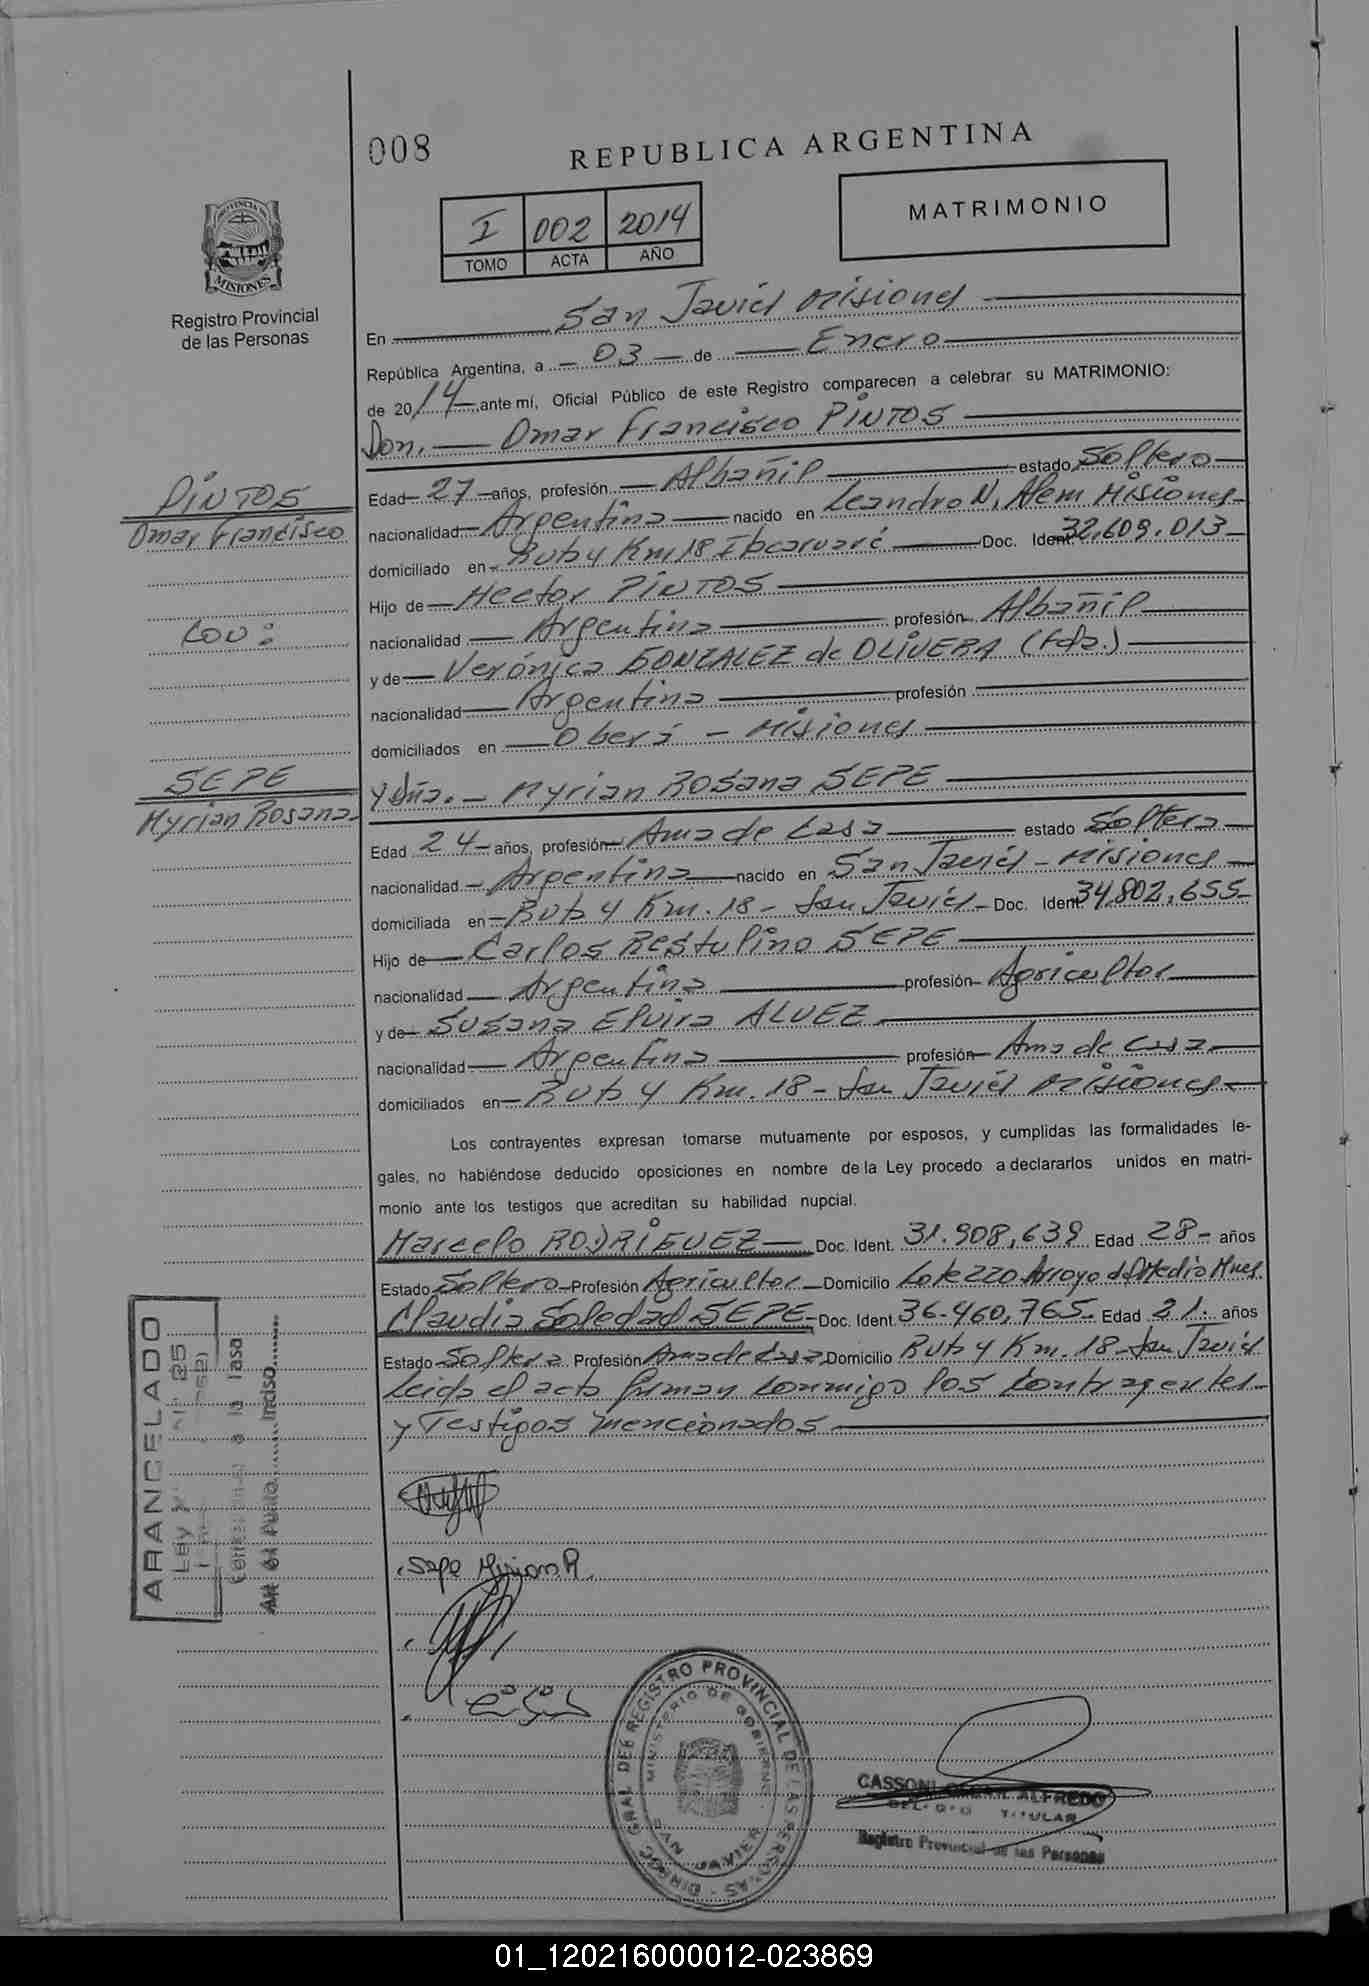 008
REPUBLICA ARGENTINA
I 002 2014
TOMO ACTA AÑO
MATRIMONIO
PROVINCIA DE
MISIONES
Registro Provincial
de las Personas
En San Javier Misiones
República Argentina, a 03 de Enero
de 2014 ante mí, Oficial Público de este Registro comparecen a celebrar su MATRIMONIO:
Don. Omar Francisco PINTOS
Edad 27 años, profesión Albañil estado Soltero
nacionalidad Argentina nacido en Leandro N. Alem Misiones
domiciliado en Ruta 4 Km 18 Doc. Ident. 32.609.013
Hijo de Hector PINTOS
nacionalidad Argentina profesión Albañil
y de Verónica GONZALEZ de OLIVERA (Fda.)
nacionalidad Argentina profesión
domiciliados en Oberá - Misiones
Y Dña. - Myrian Rosana SEPE
Edad 24 años, profesión Ama de Casa estado Soltera
nacionalidad Argentina nacido en San Javier - Misiones
domiciliada en Ruta 4 Km. 18 - San Javier - Doc. Ident. 34.802.655
Hijo de Carlos Restulino SEPE
nacionalidad Argentina profesión Agricultor
y de Susana Elvira ALVEZ
nacionalidad Argentina profesión Ama de Casa
domiciliados en Ruta 4 Km. 18 - San Javier Misiones
Los contrayentes expresan tomarse mutuamente por esposos, y cumplidas las formalidades le-
gales, no habiéndose deducido oposiciones en nombre de la Ley procedo a declararlos unidos en matri-
monio ante los testigos que acreditan su habilidad nupcial.
Marcelo RODRIGUEZ Doc. Ident. 31.908.639 Edad 28 años
Estado Soltero Profesión Agricultor Domicilio Arroyo del Medio Mnes.
Claudia Soledad SEPE Doc. Ident. 36.460.765 Edad 21 años
Estado Soltera Profesión Ama de Casa Domicilio Ruta 4 Km. 18 - San Javier
Leida el acta firman conmigo los contrayentes
y Testigos mencionados
PINTOS
Omar Francisco
CON:
SEPE
Myrian Rosana
ARANCELADO
Ley
la Tasa
Art 61 Punto Inciso
Sepe Myrian R.
DIRECC. GRAL. DEL REGISTRO PROVINCIAL DE LAS PERSONAS
MINISTERIO DE GOBIERNO
SAN JAVIER
CASSONI ALFREDO
TITULAR
Registro Provincial de las Personas
01_120216000012-023869